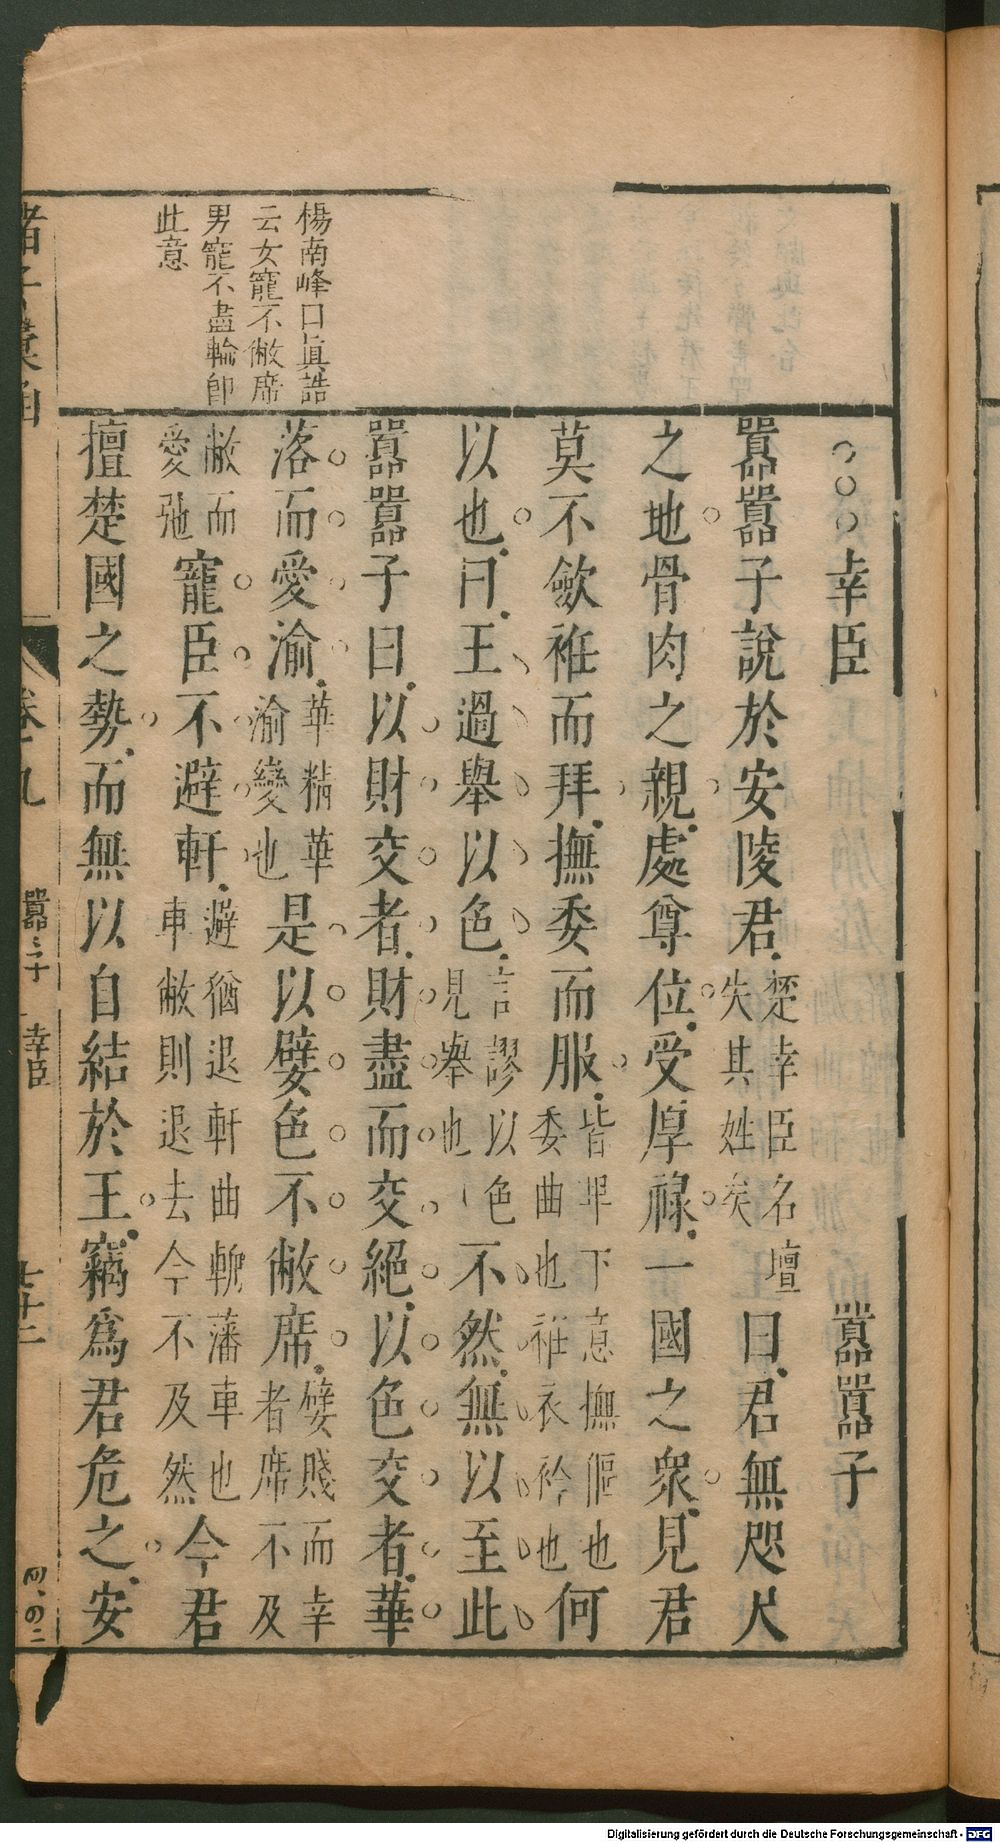 幸臣 嚻嚻子
嚻嚻子說於安陵君楚幸臣名壇失其姓矣曰君無咫尺
之地骨肉之親處尊位受厚祿一國之衆見君
莫不斂袵而拜撫委而服皆卑下意撫傴也委曲也袵衣衿也何
以也曰王過舉以色言謬以色見舉也不然無以至此
嚻嚻子曰以財交者財盡而交絕以色交者華
落而愛渝華精華渝變也是以嬖色不敝席嬖賤而幸者席不及
敝而愛弛寵臣不避軒避猶退軒曲輈藩車也車敝則退去今不及然今君
擅楚國之勢而無以自結於王竊爲君危之安
楊南峰曰眞誥
云女寵不敝席
男寵不盡輪卽
此意
卷九
嚻〻子 幸臣
七十二
Digitalisierung gefördert durch die Deutsche Forschungsgemeinschaft - DFG